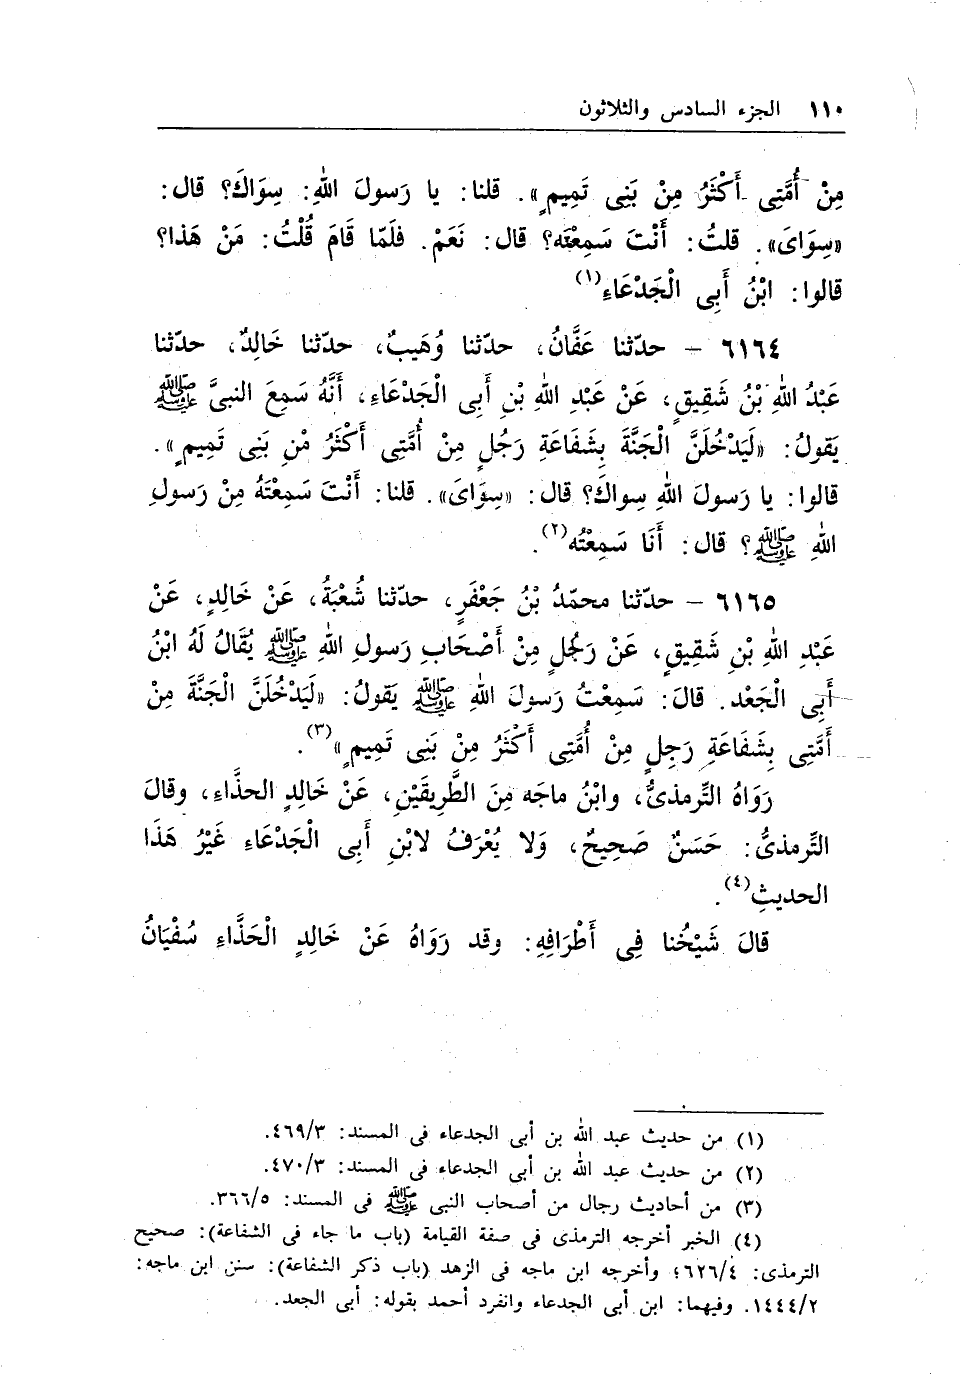 ١١٠ الجزء السادس والثلاثون
مِنْ أُمَّتِى أَكْثَرُ مِنْ بَنِى تَمِيمٍ». قلنا: يا رَسولَ اللهِ: سِوَاكَ؟ قال:
«سِوَاىَ». قلتُ: أَنْتَ سَمِعْتَه؟ قال: نَعَمْ. فلَمّا قَامَ قُلْتُ: مَنْ هَذا؟
قالوا: ابْنُ أَبِى الْجَدْعَاءِ(١)
٦١٦٤ – حدّثنا عَفَّانُ، حدّثنا وُهَيبٌ، حدّثنا خَالِدٌ، حدّثنا
عَبْدُ اللهِ بْنُ شَقِيقٍ، عَنْ عَبْدِ اللهِ بْنِ أَبِى الْجَدْعَاءِ، أَنَّهُ سَمِعَ النبىَّ ﷺ
يَقولُ: «لَيَدْخُلَنَّ الْجَنَّةَ بِشَفَاعَةِ رَجُلٍ مِنْ أُمَّتِى أَكْثَرُ مْنِ بَنِى تَمِيمٍ».
قالوا: يا رَسولَ اللهِ سِواكَ؟ قال: «سِوَاىَ». قلنا: أَنْتَ سَمِعْتَهُ مِنْ رَسولِ
اللهِ ﷺ؟ قال: أَنَا سَمِعْتُه(٢).
٦١٦٥ – حدّثنا محمّدُ بْنُ جَعْفَرٍ، حدّثنا شُعْبَةُ، عَنْ خَالِدٍ، عَنْ
عَبْدِ اللهِ بْنِ شَقِيقٍ، عَنْ رَجُلٍ مِنْ أَصْحَابِ رَسولِ اللهِ ﷺ يُقَالُ لَهُ ابْنُ
أَبِى الْجَعْد. قالَ: سَمِعْتُ رَسولَ اللهِ ﷺ يَقولُ: «لَيَدْخُلَنَّ الْجَنَّةَ مِنْ
أَمَّتِى بِشَفَاعَةِ رَجِلٍ مِنْ أُمَّتِى أَكْثَرُ مِنْ بَنِى تَمِيمٍ»(٣).
رَوَاهُ التِّرمذىُّ، وابْنُ ماجَه مِنَ الطَّرِيقَيْنِ، عَنْ خَالِدٍ الحذَّاءِ، وقالَ
التِّرمذىُّ: حَسَنٌ صَحِيحٌ، وَلا يُعْرَفُ لابْنِ أَبِى الْجَدْعَاءِ غَيْرُ هَذَا
الحديثِ(٤).
قالَ شَيْخُنا فِى أَطْرَافِهِ: وقد رَوَاهُ عَنْ خَالِدٍ الْحَذَّاءِ سُفْيَانُ
(١) من حديث عبد الله بن أبى الجدعاء فى المسند: ٤٦٩/٣.
(٢) من حديث عبد الله بن أبى الجدعاء فى المسند: ٤٧٠/٣.
(٣) من أحاديث رجال من أصحاب النبى ﷺ فى المسند: ٣٦٦/٥.
(٤) الخبر أخرجه الترمذى فى صفة القيامة (باب ما جاء فى الشفاعة): صحيح
الترمذى: ٦٢٦/٤؛ وأخرجه ابن ماجه فى الزهد (باب ذكر الشفاعة): سنن ابن ماجه:
١٤٤٤/٢. وفيهما: ابن أبى الجدعاء وانفرد أحمد بقوله: أبى الجعد.